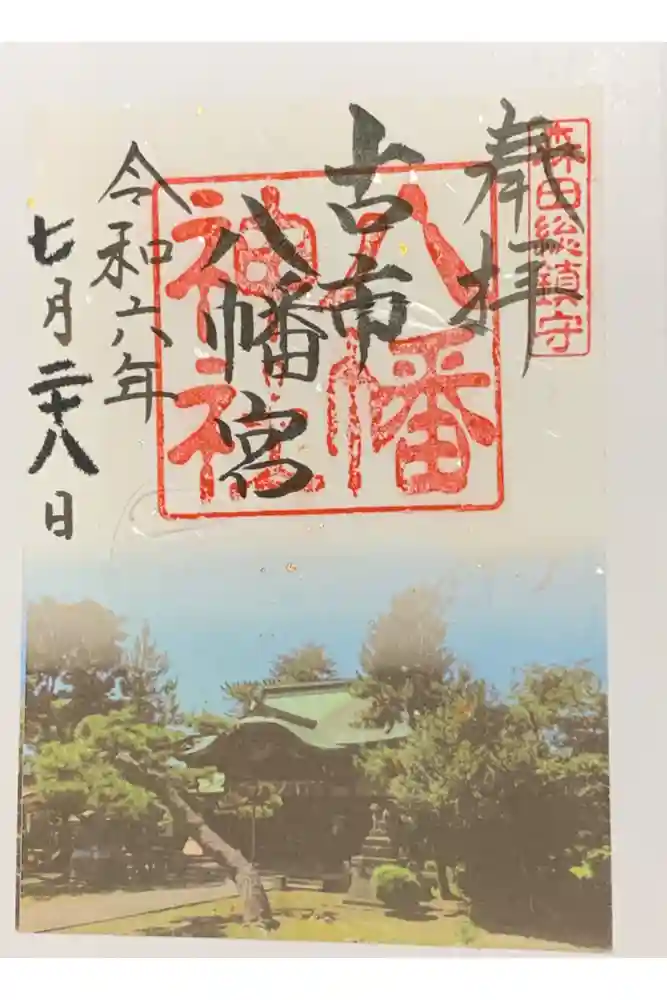 森田総鎮守
奉拝
古市
八幡宮
八幡
神社
令和六年
七月二十八日